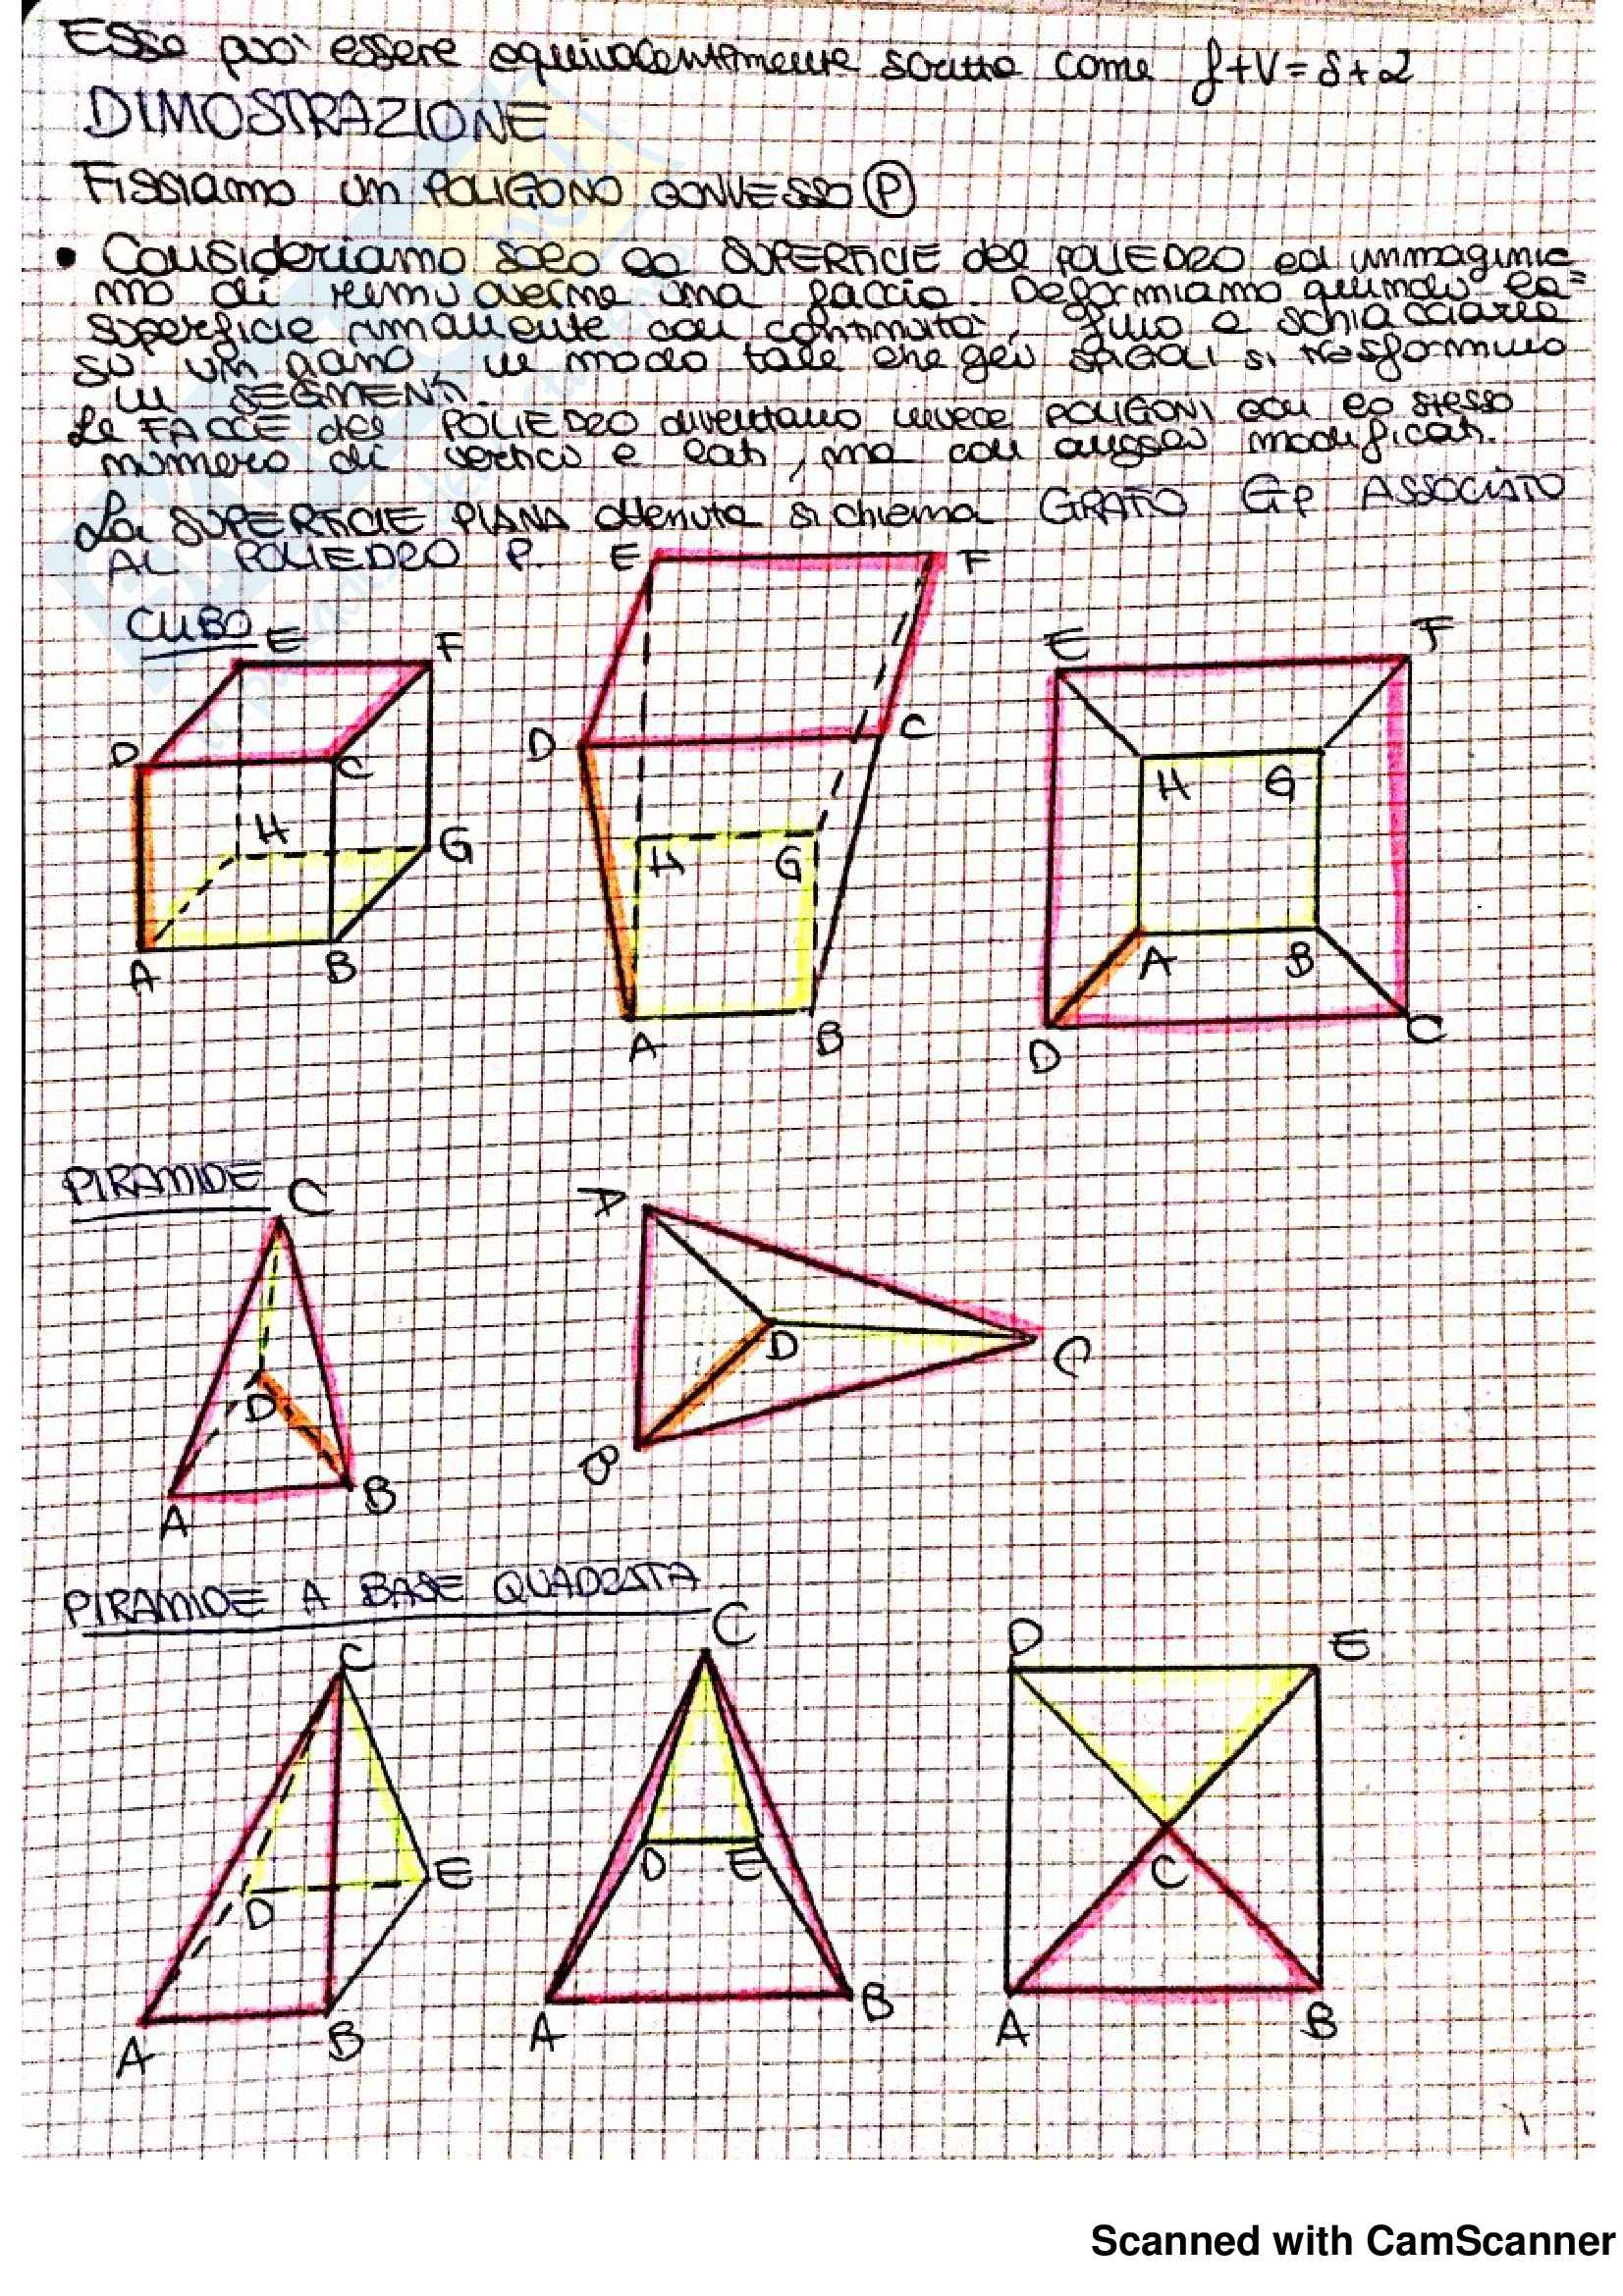 Esso può essere equivalentemente scritto come f+V=s+2
DIMOSTRAZIONE
Fissiamo un POLIGONO CONVESSO P
• Consideriamo solo la SUPERFICIE del POLIEDRO ed immaginia
mo di rimuoverne una faccia. Deformiamo quindi la
superficie rimanente con continuità, fino a schiacciarla
su un piano, in modo tale che gli SPIGOLI si trasformino
in SEGMENTI.
Le FACCE del POLIEDRO diventano invece POLIGONI con lo stesso
numero di vertici e lati, ma con angoli modificati.
La SUPERFICIE PIANA ottenuta si chiama GRAFO Gp ASSOCIATO
AL POLIEDRO P.
CUBO
E F D C H G A B
E F D C H G A B
E F H G A B D C
PIRAMIDE
C D A B
A D C B
PIRAMIDE A BASE QUADRATA
C D E A B
C D E A B
D E C A B
Scanned with CamScanner